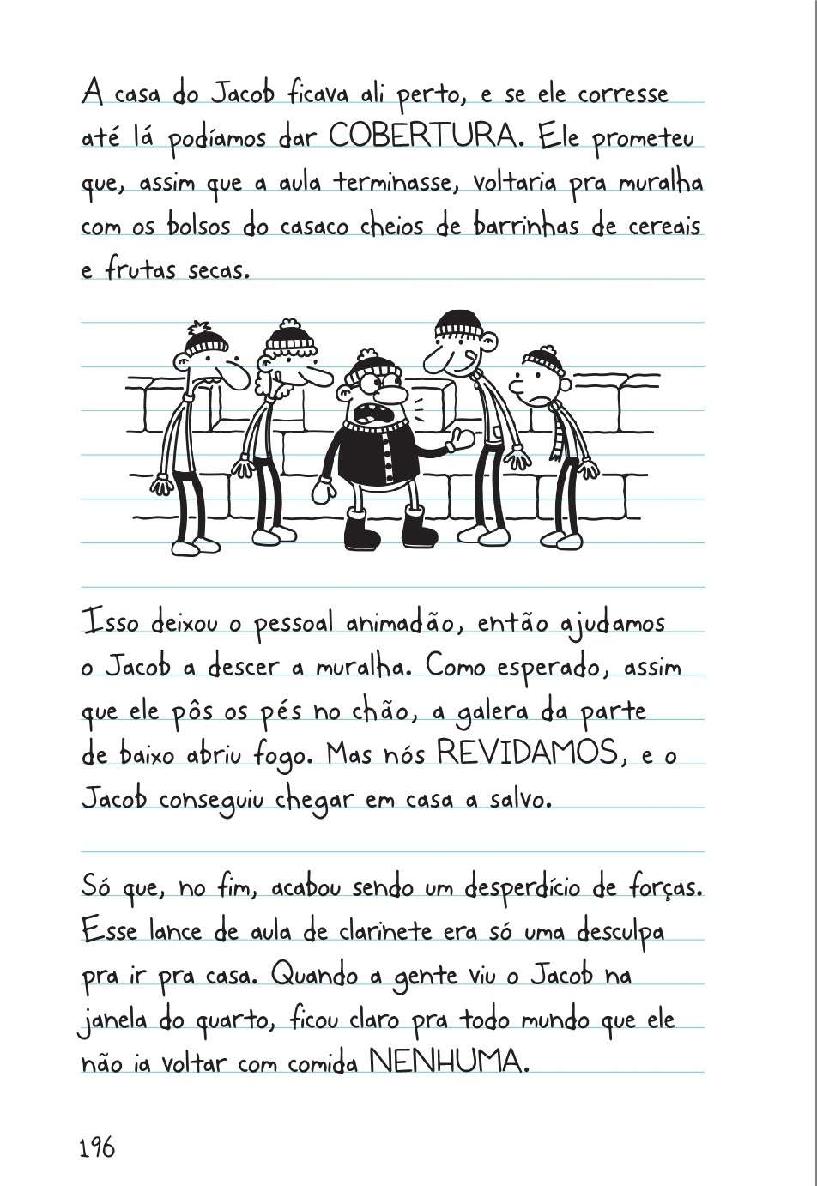 A casa do Jacob ficava ali perto, e se ele corresse
até lá podíamos dar COBERTURA. Ele prometeu
que, assim que a aula terminasse, voltaria pra muralha
com os bolsos do casaco cheios de barrinhas de cereais
e frutas secas.
Isso deixou o pessoal animadão, então ajudamos
o Jacob a descer a muralha. Como esperado, assim
que ele pôs os pés no chão, a galera da parte
de baixo abriu fogo. Mas nós REVIDAMOS, e o
Jacob conseguiu chegar em casa a salvo.
Só que, no fim, acabou sendo um desperdício de forças.
Esse lance de aula de clarinete era só uma desculpa
pra ir pra casa. Quando a gente viu o Jacob na
janela do quarto, ficou claro pra todo mundo que ele
não ia voltar com comida NENHUMA.
196